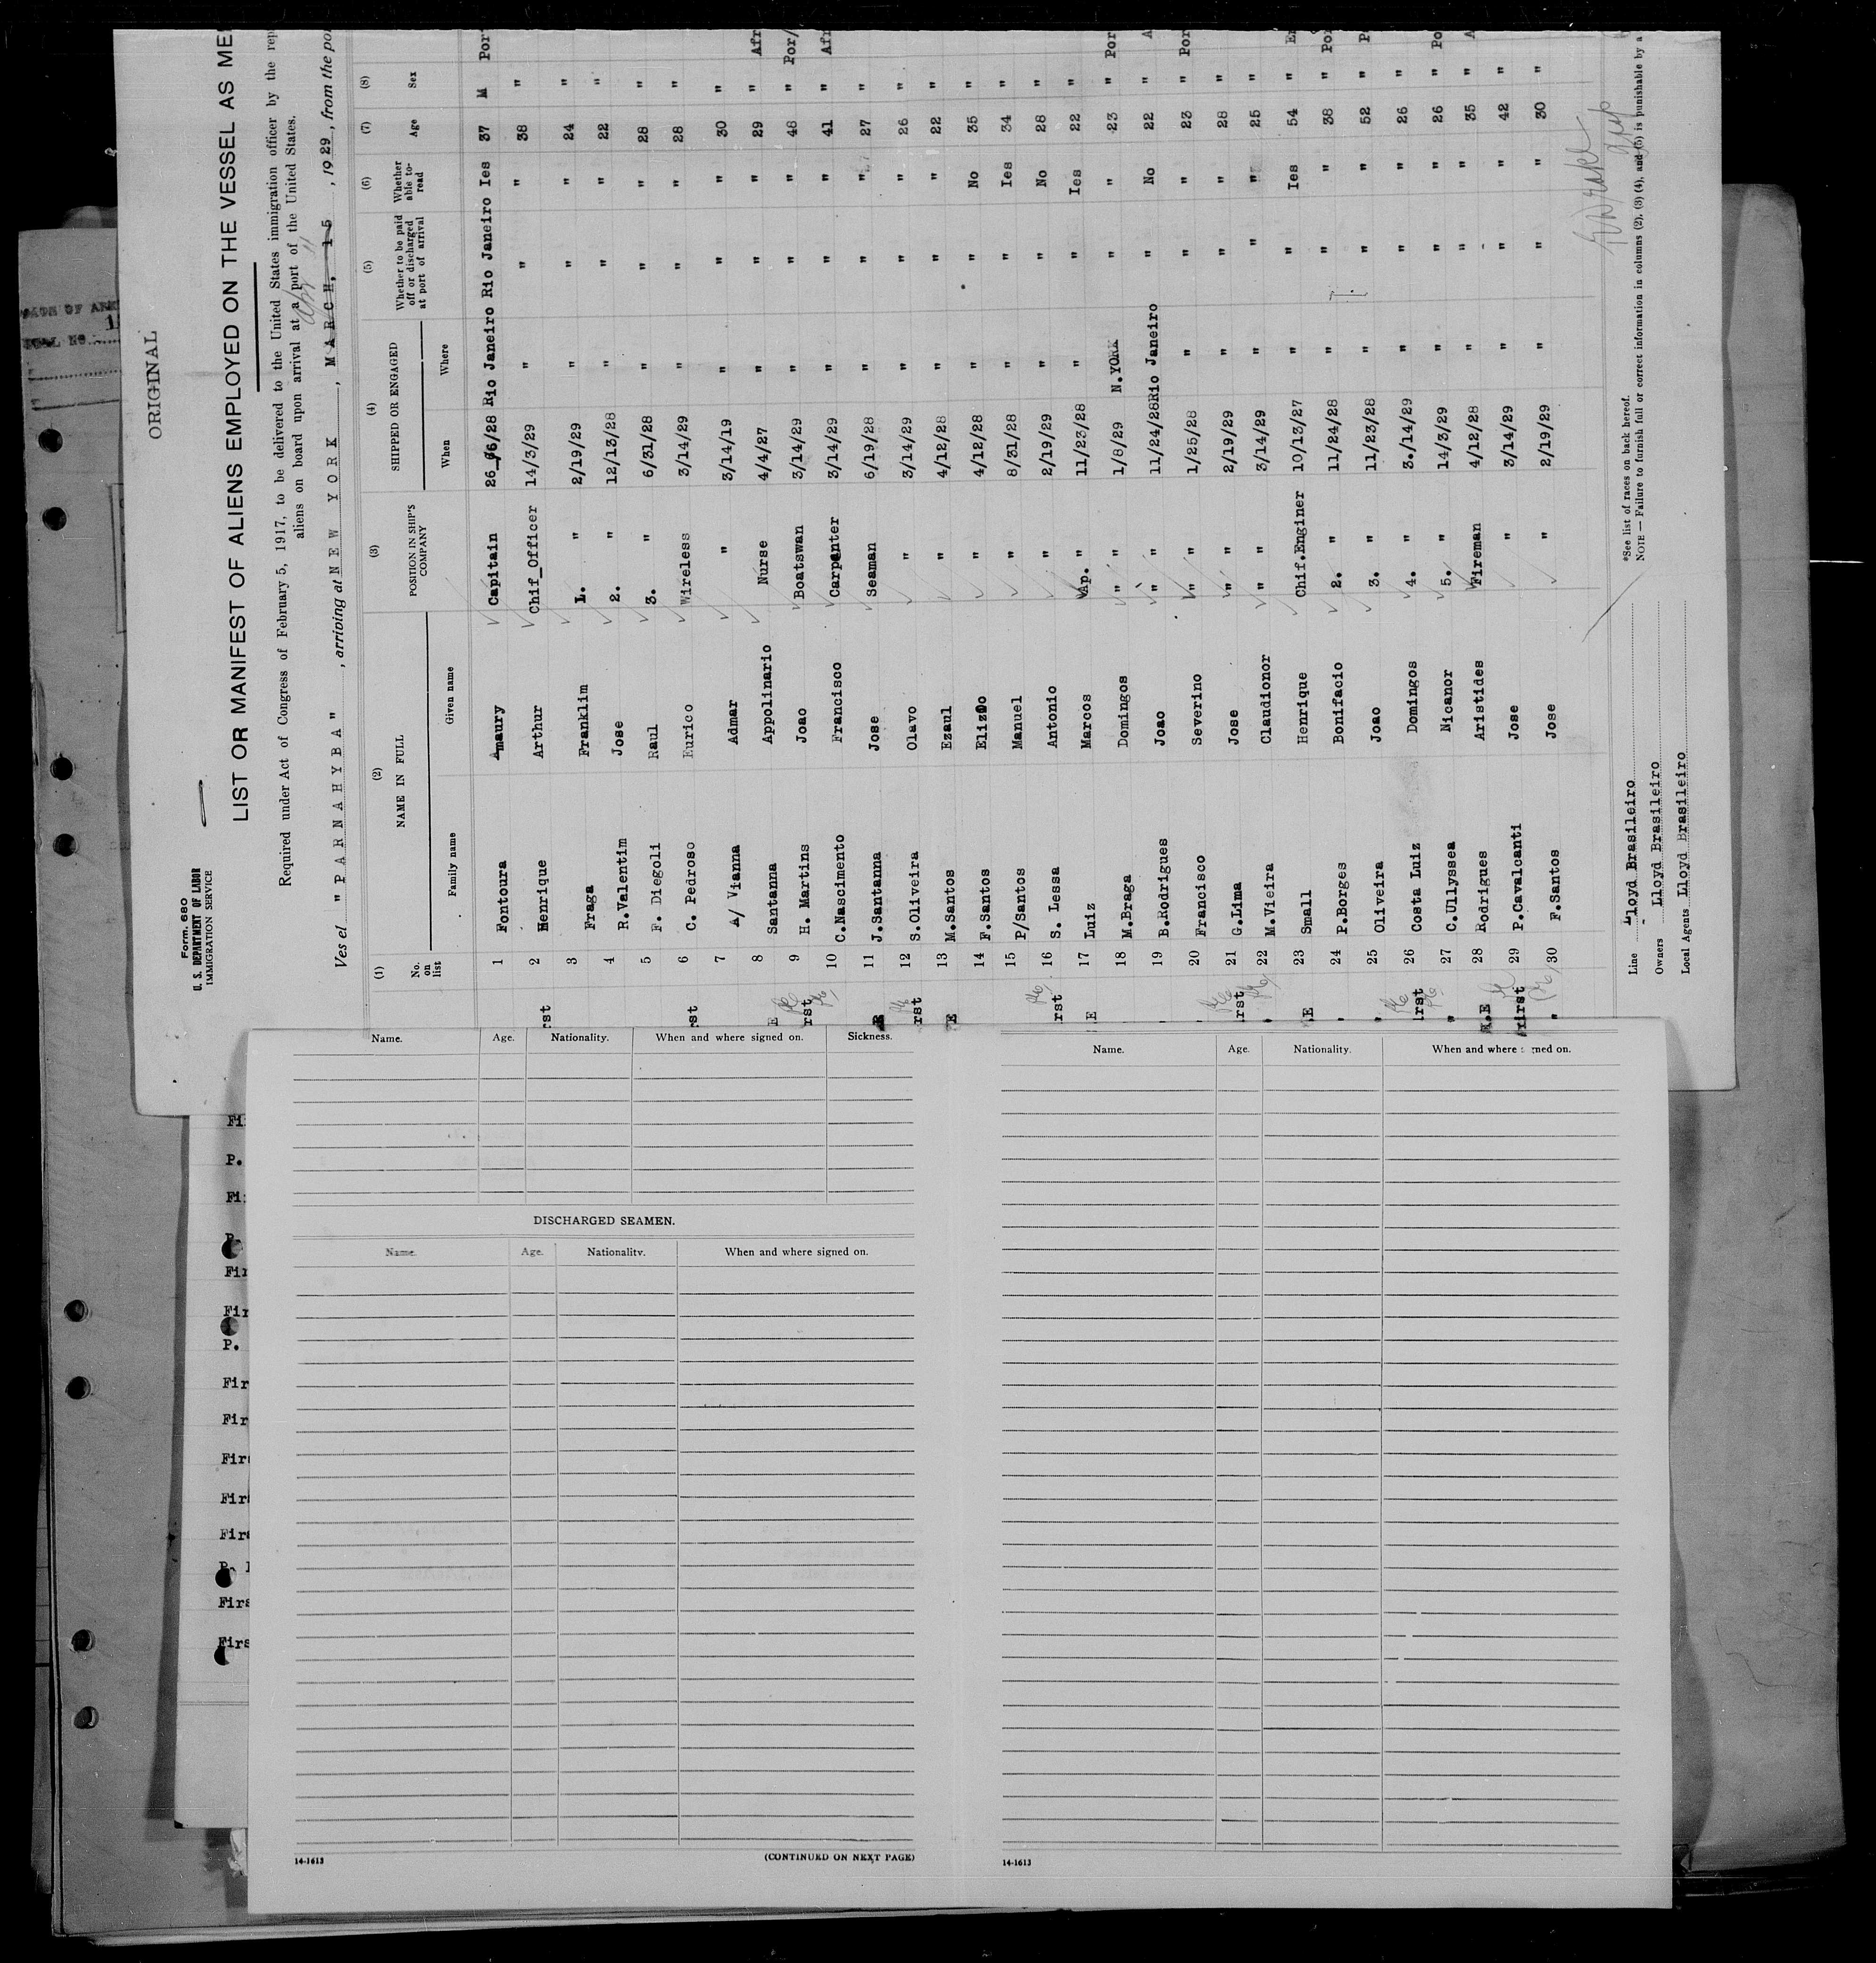 ORIGINAL
Form. 680
U. S. DEPARTMENT OF LABOR
IMMIGRATION SERVICE
LIST OR MANIFEST OF ALIENS EMPLOYED ON THE VESSEL AS ME
Required under Act of Congress of February 5, 1917, to be delivered to the United States immigration officer by the rep
aliens on board upon arrival at a port of the United States.
Ves el " P A R N A H Y B A " , arriping at N E W Y O R K , M A R C H, 1 5 , 1929, from the por
(1) (2) (3) (4) (5) (6) (7) (8)
No. on list NAME IN FULL POSITION IN SHIP'S COMPANY SHIPPED OR ENGAGED Whether to be paid off or discharged at port of arrival Whether able to read Age Sex
Family name Given name When Where
1 Fontoura Amaury Capitain 26_06/28 Rio Janeiro Rio Janeiro Ies 37 M Por
2 Henrique Arthur Chif_Officer 14/3/29 " " " 38 "
3 Fraga Franklim 1. " 2/19/29 " " " 24 "
4 R.Valentim Jose 2. " 12/13/28 " " " 22 "
5 F. Diegoli Raul 3. " 6/31/28 " " " 28 "
6 C. Pedroso Eurico Wireless 3/14/29 " " " 28 "
7 A/ Vianna Admar " 3/14/19 " " " 30 "
8 Santanna Appolinario Nurse 4/4/27 " " " 29 " Afr
9 H. Martins Joao Boatswan 3/14/29 " " " 48 " Por/
10 C.Nascimento Francisco Carpanter 3/14/29 " " " 41 " Afr
11 J.Santanna Jose Seaman 6/19/28 " " " 27 "
12 S.Oliveira Olavo " 3/14/29 " " " 26 "
13 M.Santos Ezaul " 4/12/28 " " " 22 "
14 F.Santos Elizio " 4/12/28 " " No 35 "
15 P/Santos Manuel " 8/31/28 " " Ies 34 "
16 S. Lessa Antonio " 2/19/29 " " No 28 "
17 Luiz Marcos Ap. " 11/23/28 " " Ies 22 "
18 M.Braga Domingos " " 1/8/29 N.YORK " " 23 " Por
19 B.Rodrigues Joao " " 11/24/28 Rio Janeiro " No 22 " A
20 Francisco Severino " " 1/25/28 " " " 23 " Por
21 G.Lima Jose " " 2/19/29 " " " 28 "
22 M.Vieira Claudionor " " 3/14/29 " " " 25 "
23 Small Henrique Chif.Enginer 10/13/27 " " Ies 54 " En
24 P.Borges Bonifacio 2. " 11/24/28 " " " 38 " Po
25 Oliveira Joao 3. " 11/23/28 " " " 52 " P
26 Costa Luiz Domingos 4. " 3./14/29 " " " 26 "
27 C.Ullyssea Nicanor 5. " 14/3/29 " " " 26 " Po
28 Rodrigues Aristides Fireman 4/12/28 " " " 35 " A
29 P.Cavalcanti Jose " 3/14/29 " " " 42 "
30 F.Santos Jose " 2/19/29 " " " 30 "
*See list of races on back hereof.
NOTE — Failure to furnish full or correct information in columns (2), (3) (4), and (5) is punishable by a
Line Lloyd Brasileiro
Owners Lloyd Brasileiro
Local Agents Lloyd Brasileiro
Name. Age. Nationality. When and where signed on. Sickness.
DISCHARGED SEAMEN.
Name. Age. Nationality. When and where signed on.
14-1613 (CONTINUED ON NEXT PAGE)
Name. Age. Nationality. When and where signed on.
14-1613